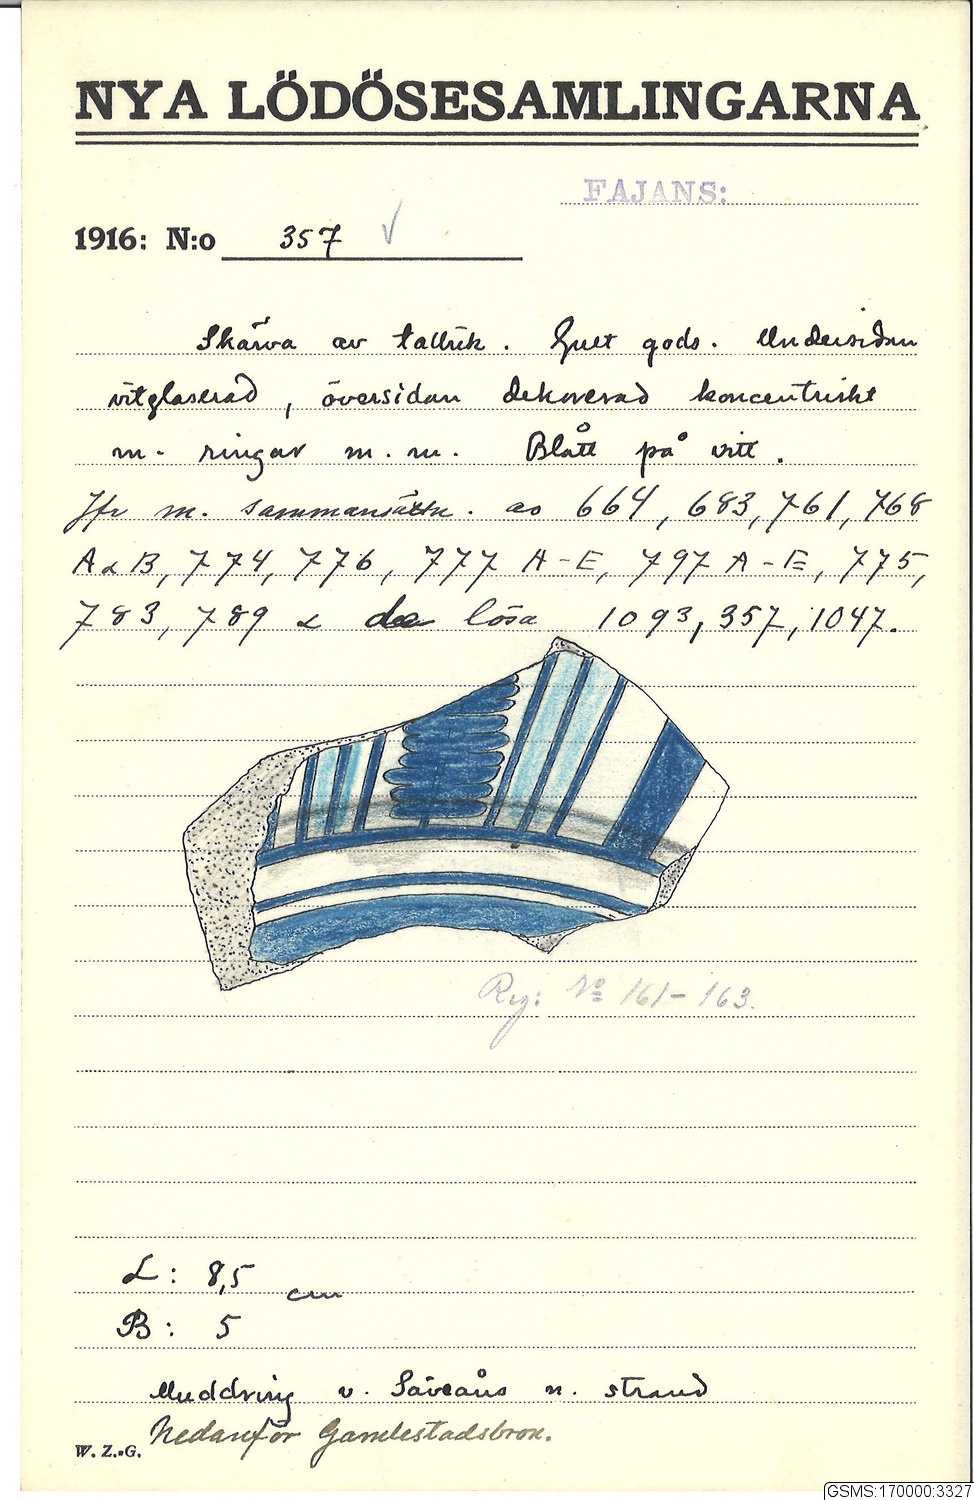 NYA LÖDÖSESAMLINGARNA
FAJANS:
1916: N:o 357
Skärva av tallrik. Gult gods. Undersidan
vitglaserad, översidan dekorerad koncentriskt
m. ringar m.m. Blått på vitt.
Jfr m. sammansättn. av 664, 683, 761, 768
A & B, 774, 776, 777 A-E, 797 A-E, 775,
783, 789 & de lösa 1093, 357, 1047.
Reg: No 161-163.
L: 8,5 cm
B: 5
Muddring v. Säveåns n. strand
Nedanför Gamlestadsbron.
W. Z.-G.
GSMS:170000:3327